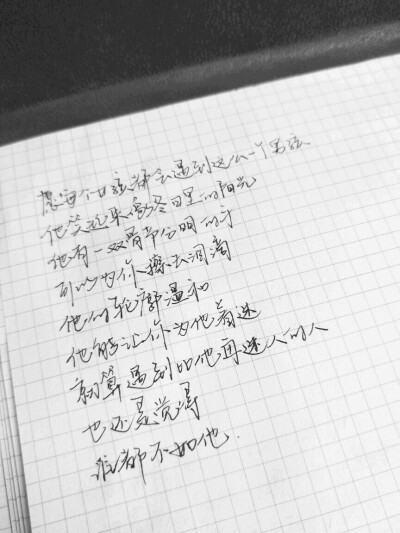 想每个女孩都会遇到这么一个男孩
他笑起来像冬日里的阳光
他有一双骨节分明的手
可以为你擦去泪滴
他的轮廓温和
他能让你为他着迷
就算遇到比他再迷人的人
也还是觉得
谁都不如他.